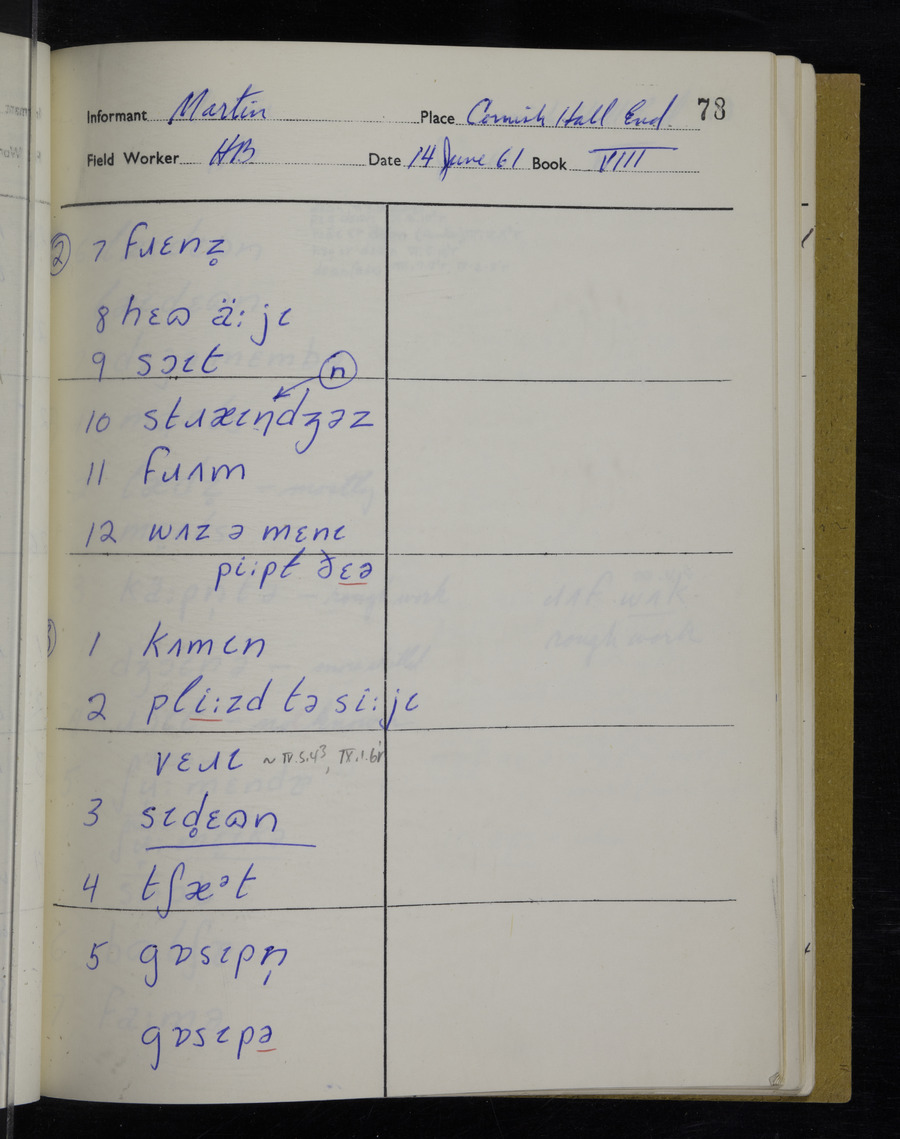 Informant Martin Place Cornish Hall End 73
Field Worker HB Date 14 June 61 Book VIII
② 7 fɹɛnz̥
8 hɛɷ ä:jɩ
9 sɔɩt
ⓝ
10 stɹæɩn̩dʒəz
11 fɹʌm
12 wʌz ə mɛnɩ
pi:pt ðɛə
1 kʌmɩn
2 pli:zd tə si:jɩ
vɛɹɩ ~ IV.5.4³, IX.1.6r
3 sɩd̥ɛɷn
4 tʃæᵊt
5 gɒsɩpn̩
gɒsɩpə